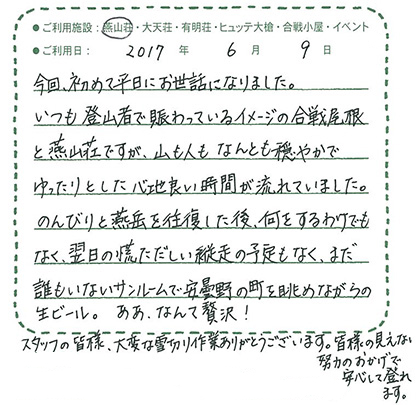 ●ご利用施設：燕山荘・大天荘・有明荘・ヒュッテ大槍・合戦小屋・イベント
●ご利用日： 2017 年 6 月 9 日
今回、初めて平日にお世話になりました。
いつも登山者で賑わっているイメージの合戦尾根
と燕山荘ですが、山も人もなんとも穏やかで
ゆったりとした心地良い時間が流れていました。
のんびりと燕岳を往復した後、何をするわけでも
なく、翌日の慌ただしい縦走の予定もなく、まだ
誰もいないサンルームで安曇野の町を眺めながらの
生ビール。 ああ、なんて贅沢！
スタッフの皆様、大変な雪切り作業ありがとうございます。皆様の見えない
努力のおかげで
安心して登れ
ます。